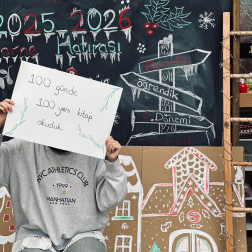 2025 2026
Karne Hatırası
öğrendik
Dönemi
100 günde
100 yeni kitap
okuduk
NYC ATHLETICS CLUB
1999
MANHATTAN